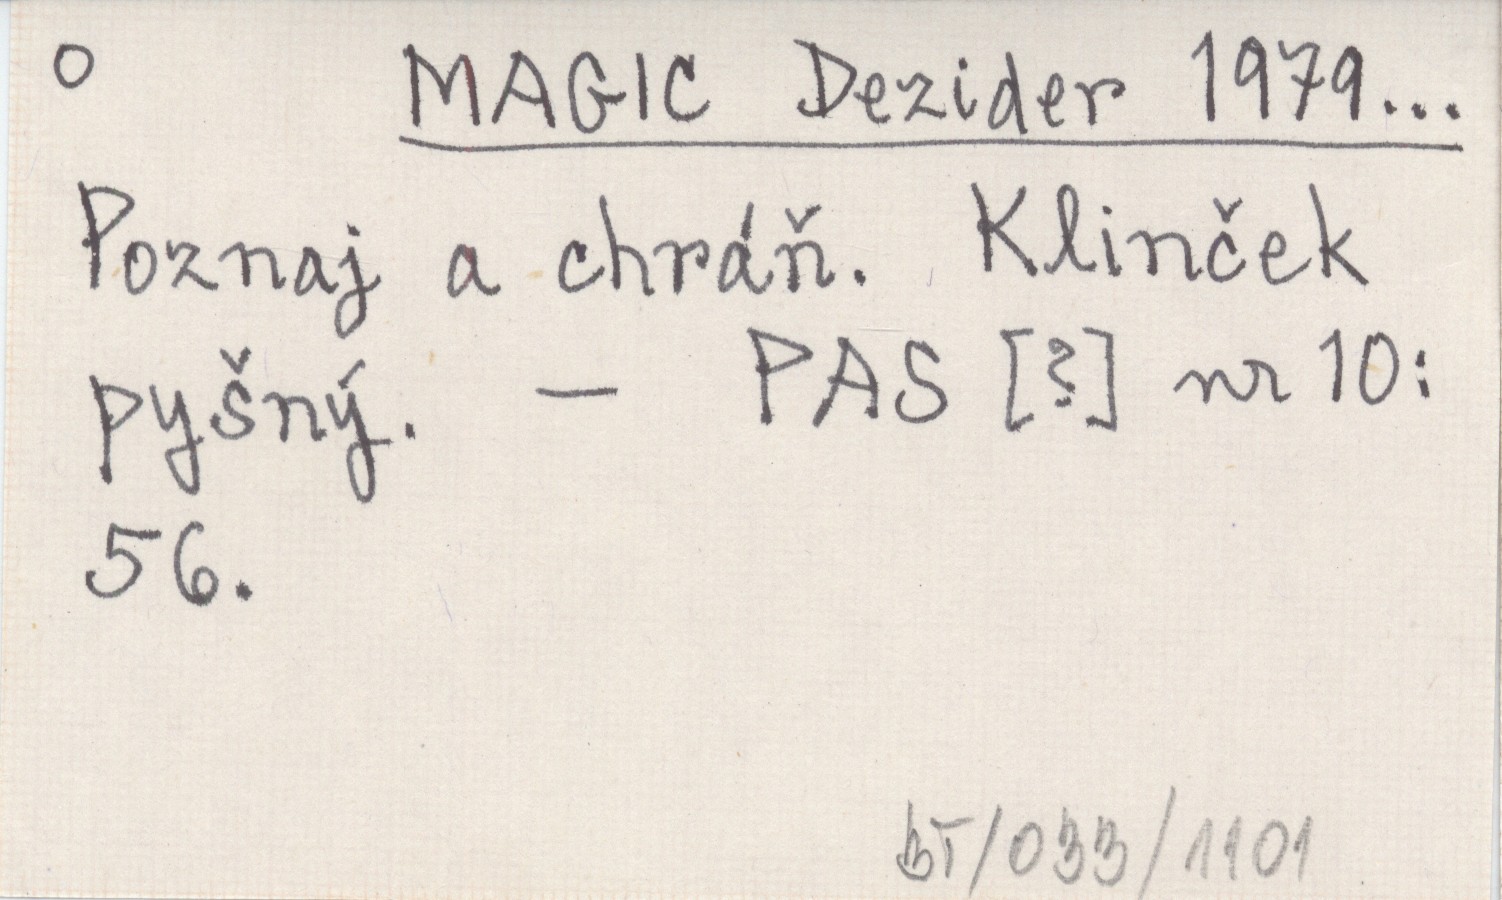 o MAGIC Dezider 1979...
Poznaj a chráň. Klinček
pyšný. — PAS [?] nr 10:
56.
BT/033/1101